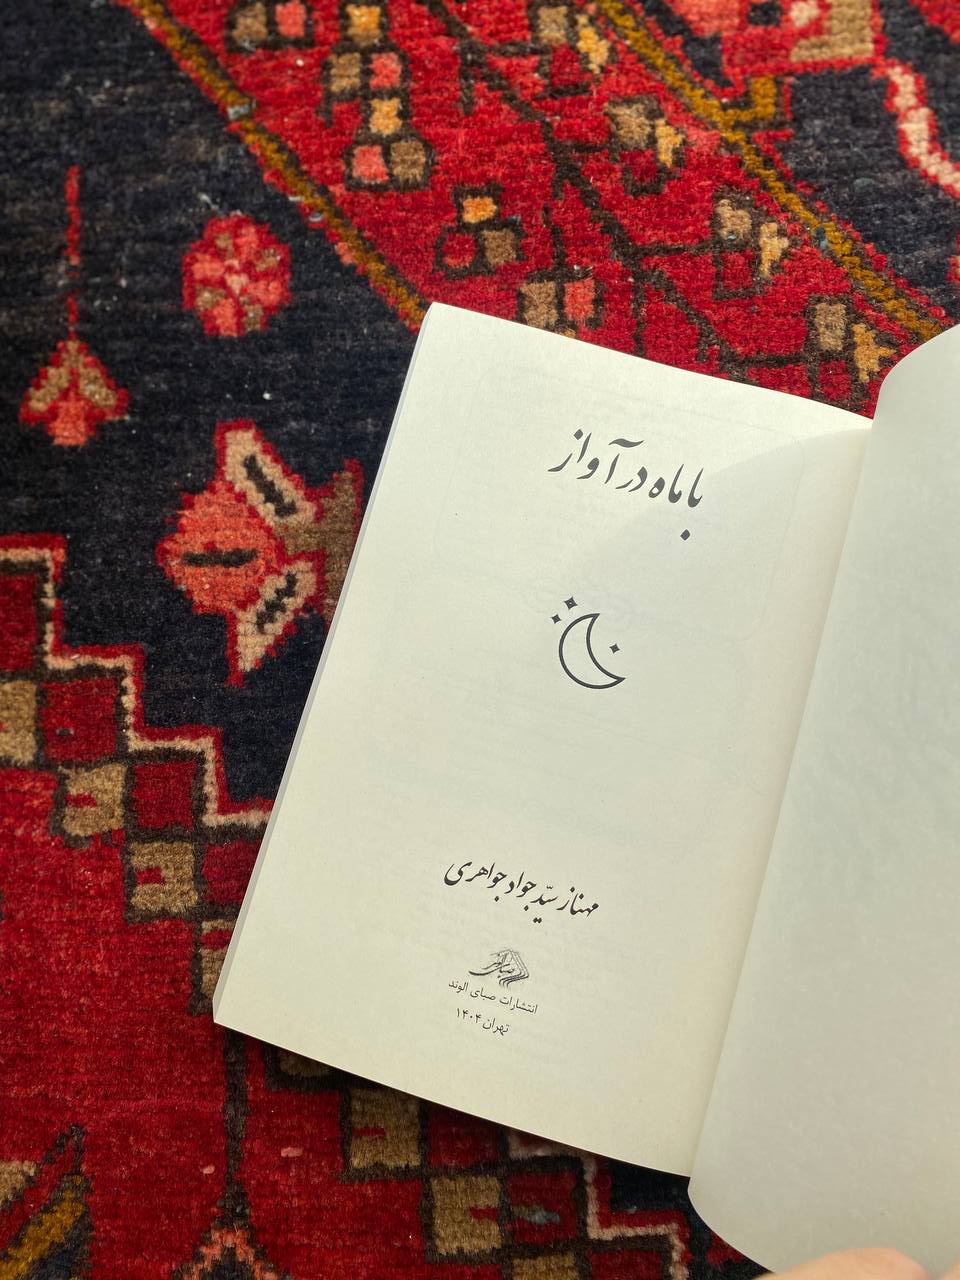 با ماه در آواز
مهناز سیّد جواد جواهری
صبای الوند
انتشارات صبای الوند
تهران ۱۴۰۴